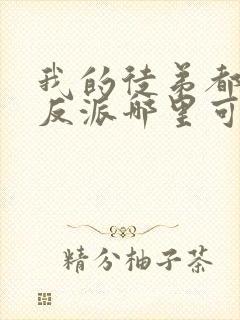 我的徒弟都
反派哪里可
精分柚子茶